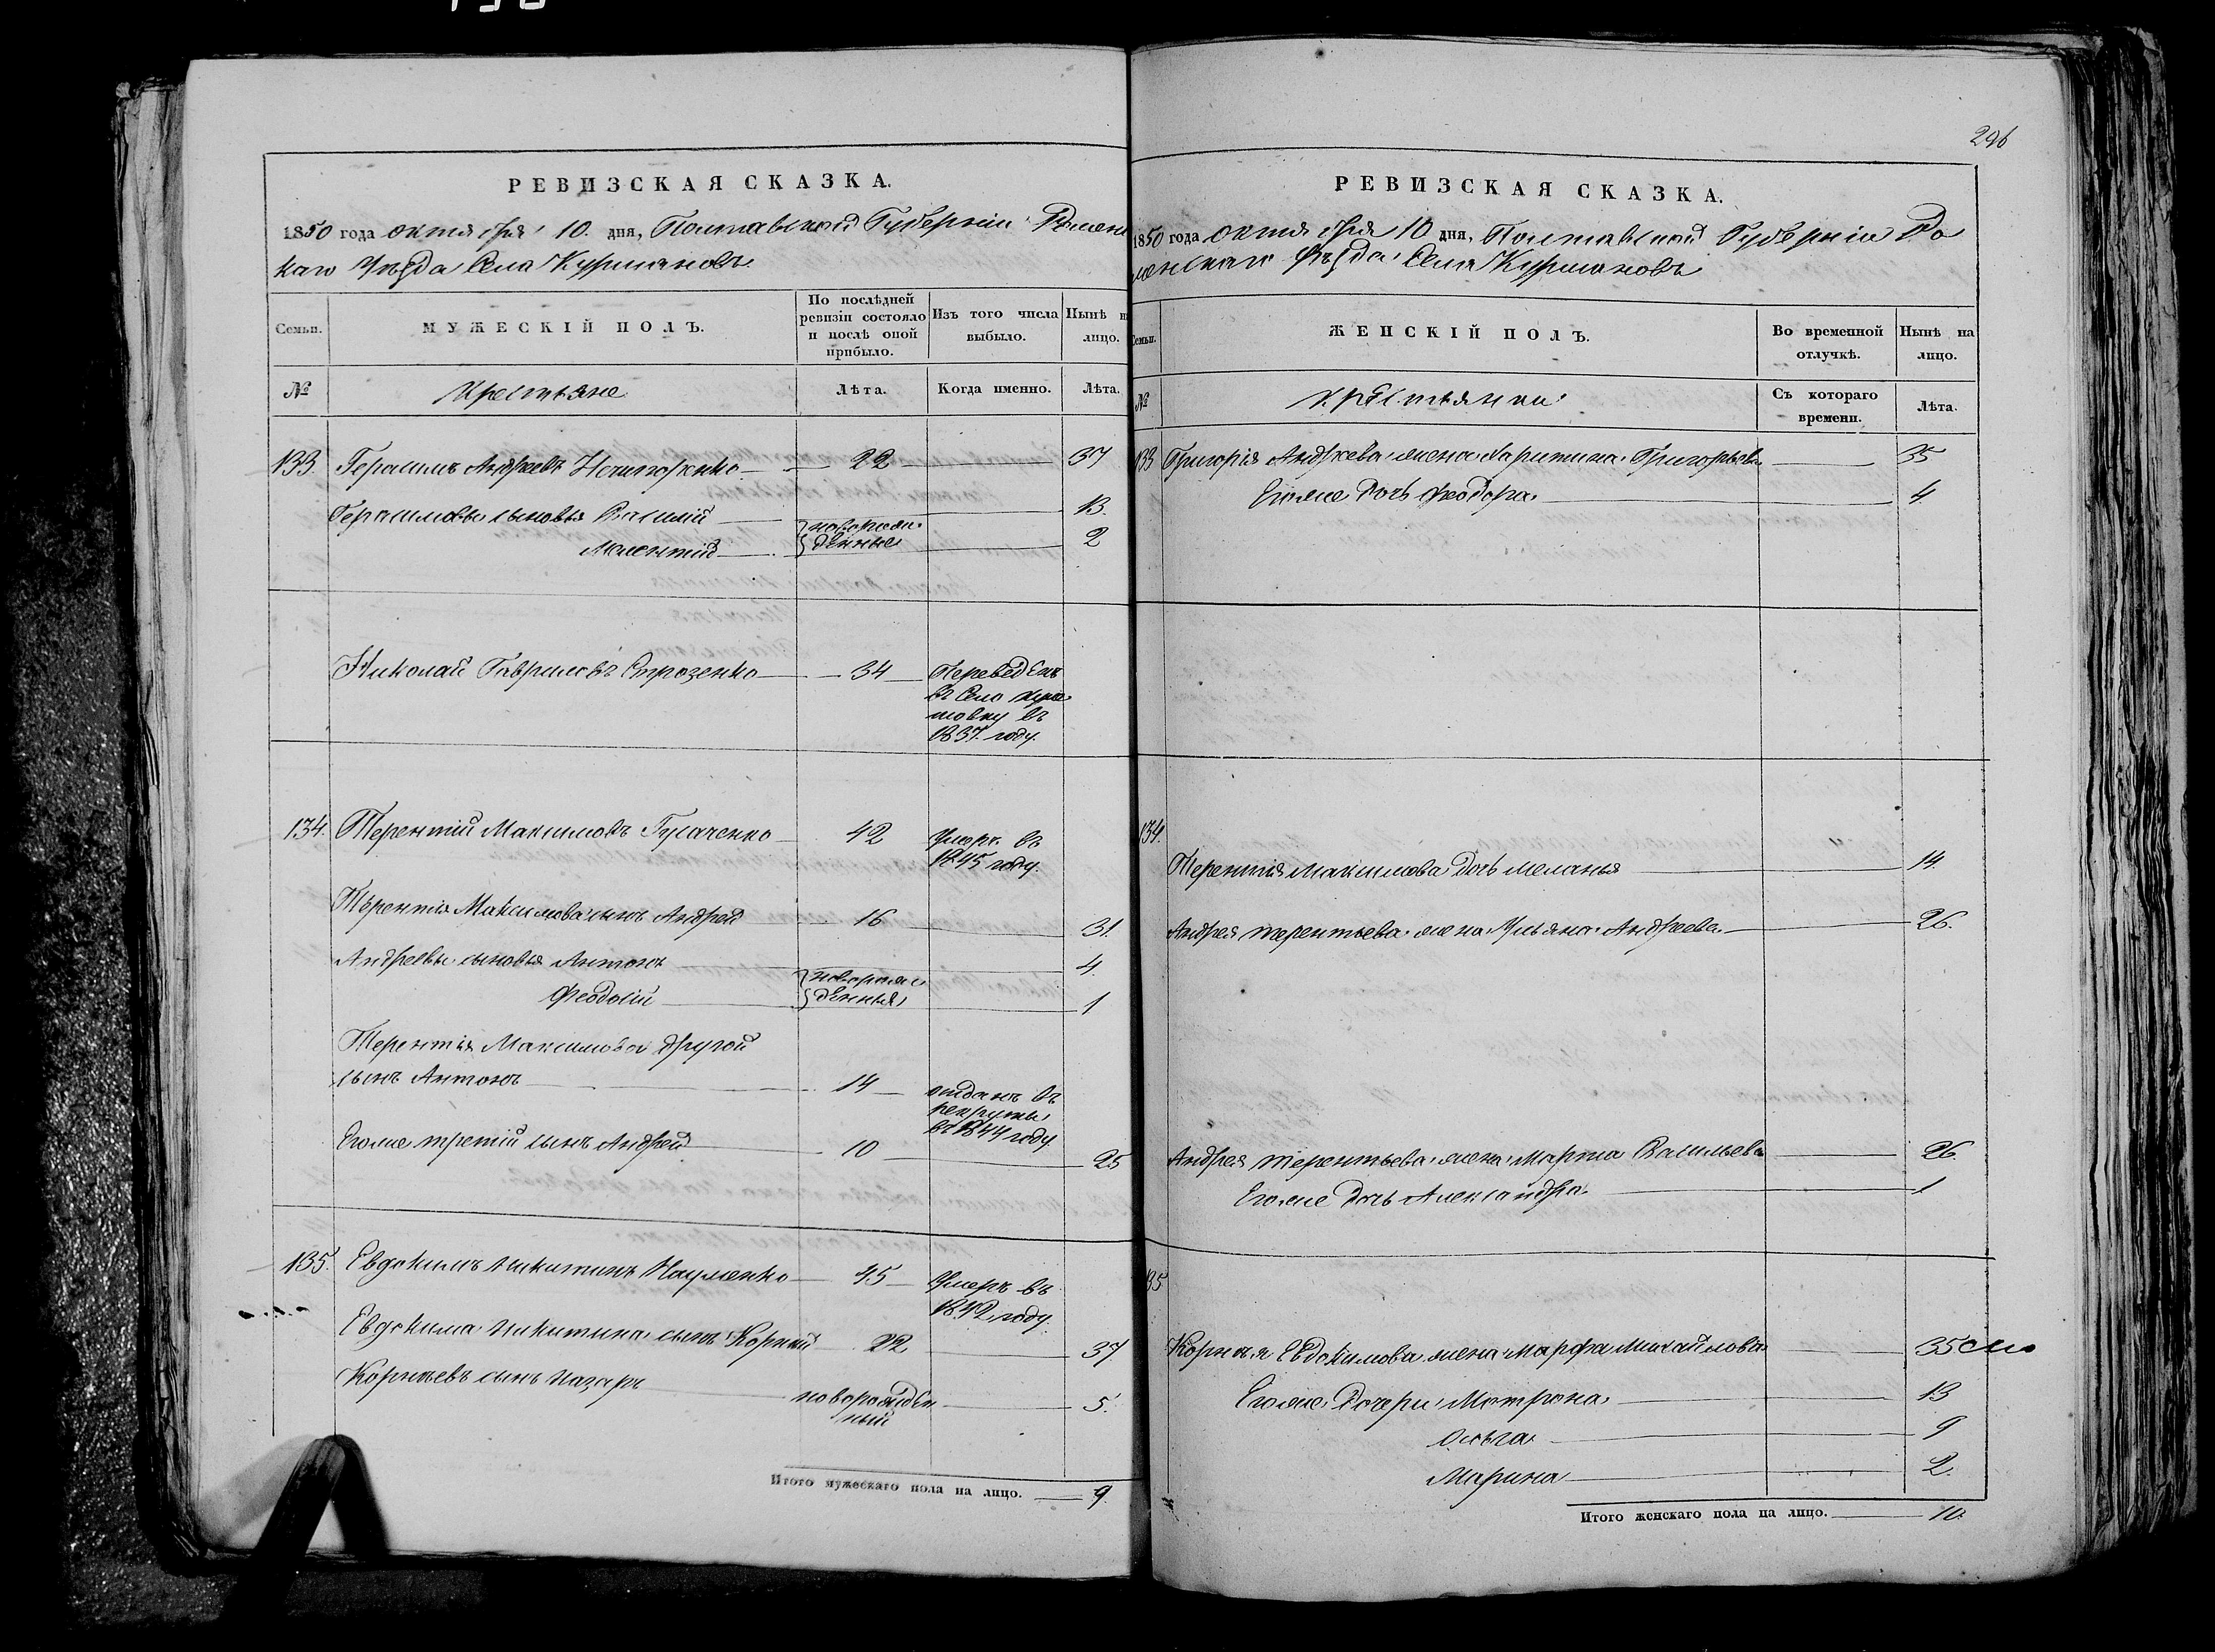 296
РЕВИЗСКАЯ СКАЗКА.
1850 года октября 10. дня, Полтавской Губерніи Ромен
каго Уѣзда Села Курмановъ
Семьи.
МУЖЕСКІЙ ПОЛЪ.
По послѣдней
ревизіи состояло
и послѣ оной
прибыло.
Изъ того числа
выбыло.
Нынѣ н
лицо.
№
Крестьяне
Лѣта.
Когда именно.
Лѣта.
133. Герасимъ Андреевъ 22 37
Герасимовы сыновья Василій 13.
новорож
денные
Мелентій 2
Николай Гавриловъ 34 Переведенъ
въ Село
въ
1837. году.
134. Терентій Максимовъ Гусаченко 42 Умеръ въ
1845 году.
Терентія Максимова сынъ Андрей 16 31.
Андреевы сыновья Антонъ 4.
новорож
денныя
Феодосій 1
Терентія Максимова другой
сынъ Антонъ 14 отданъ въ
рекруты
въ 1844 году
Егоже третій сынъ Андрей 10 25
135. Евдокимъ Никитинъ Науменко 45 Умеръ въ
1842 году.
Евдокима Никитина сынъ Корній 22 37
Корнѣевъ сынъ Назаръ новорожден
ный 5.
Итого мужескаго пола на лицо. 9.
РЕВИЗСКАЯ СКАЗКА.
1850 года октября 10 дня, Полтавской Губерніи Ро
менскаго Уѣзда Села Курмановъ
Семьи.
ЖЕНСКІЙ ПОЛЪ.
Во временной
отлучкѣ.
Нынѣ на
лицо.
№
крестьянки
Съ котораго
времени.
Лѣта.
133 Григорія Андреева жена Харитина Григорьева 35
Егоже дочь Феодора 4
134.
Терентія Максимова дочь Меланья 14.
Андрея терентьева жена Ульяна Андреева 26.
Андрея Терентьева жена Марта Васильева 26.
Егоже дочь Александра 1
135
Корнѣя Евдокимова жена Марфа Михайлова 35
Егоже дочери Мотрона 13
Ольга 9
Марина 2.
Итого женскаго пола на лицо. 10.